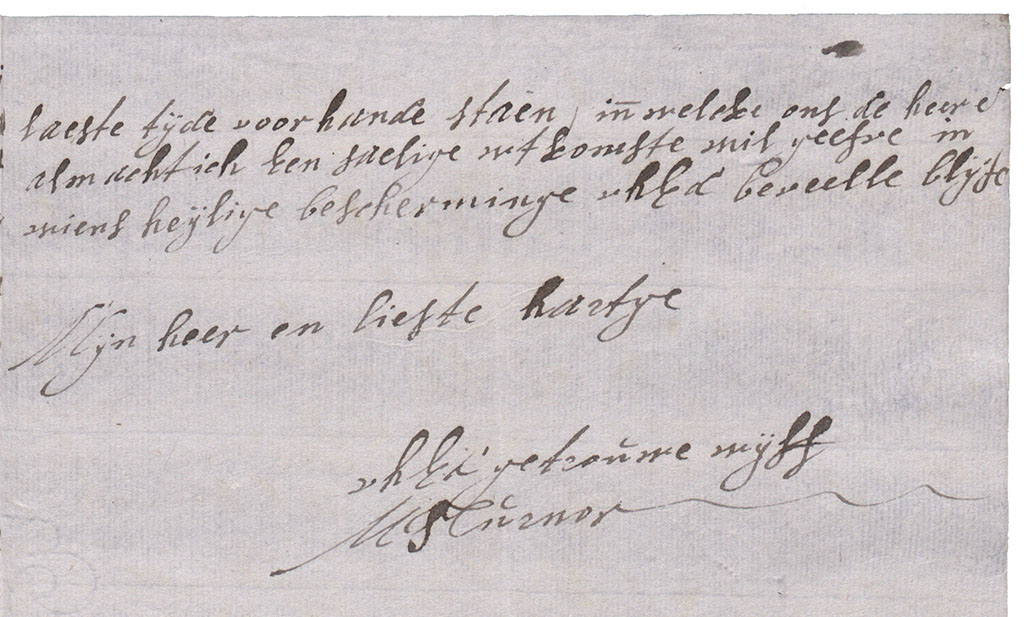 laeste tijde voorhande staen, in welcke ons de heere
almachtich een saelige utkomste wil geefve in
wiens heylige bescherminge uhEd beveelle blijfe
Mijn heer en liefste hartge
uhEd getrouwe wijff
M Sturnor